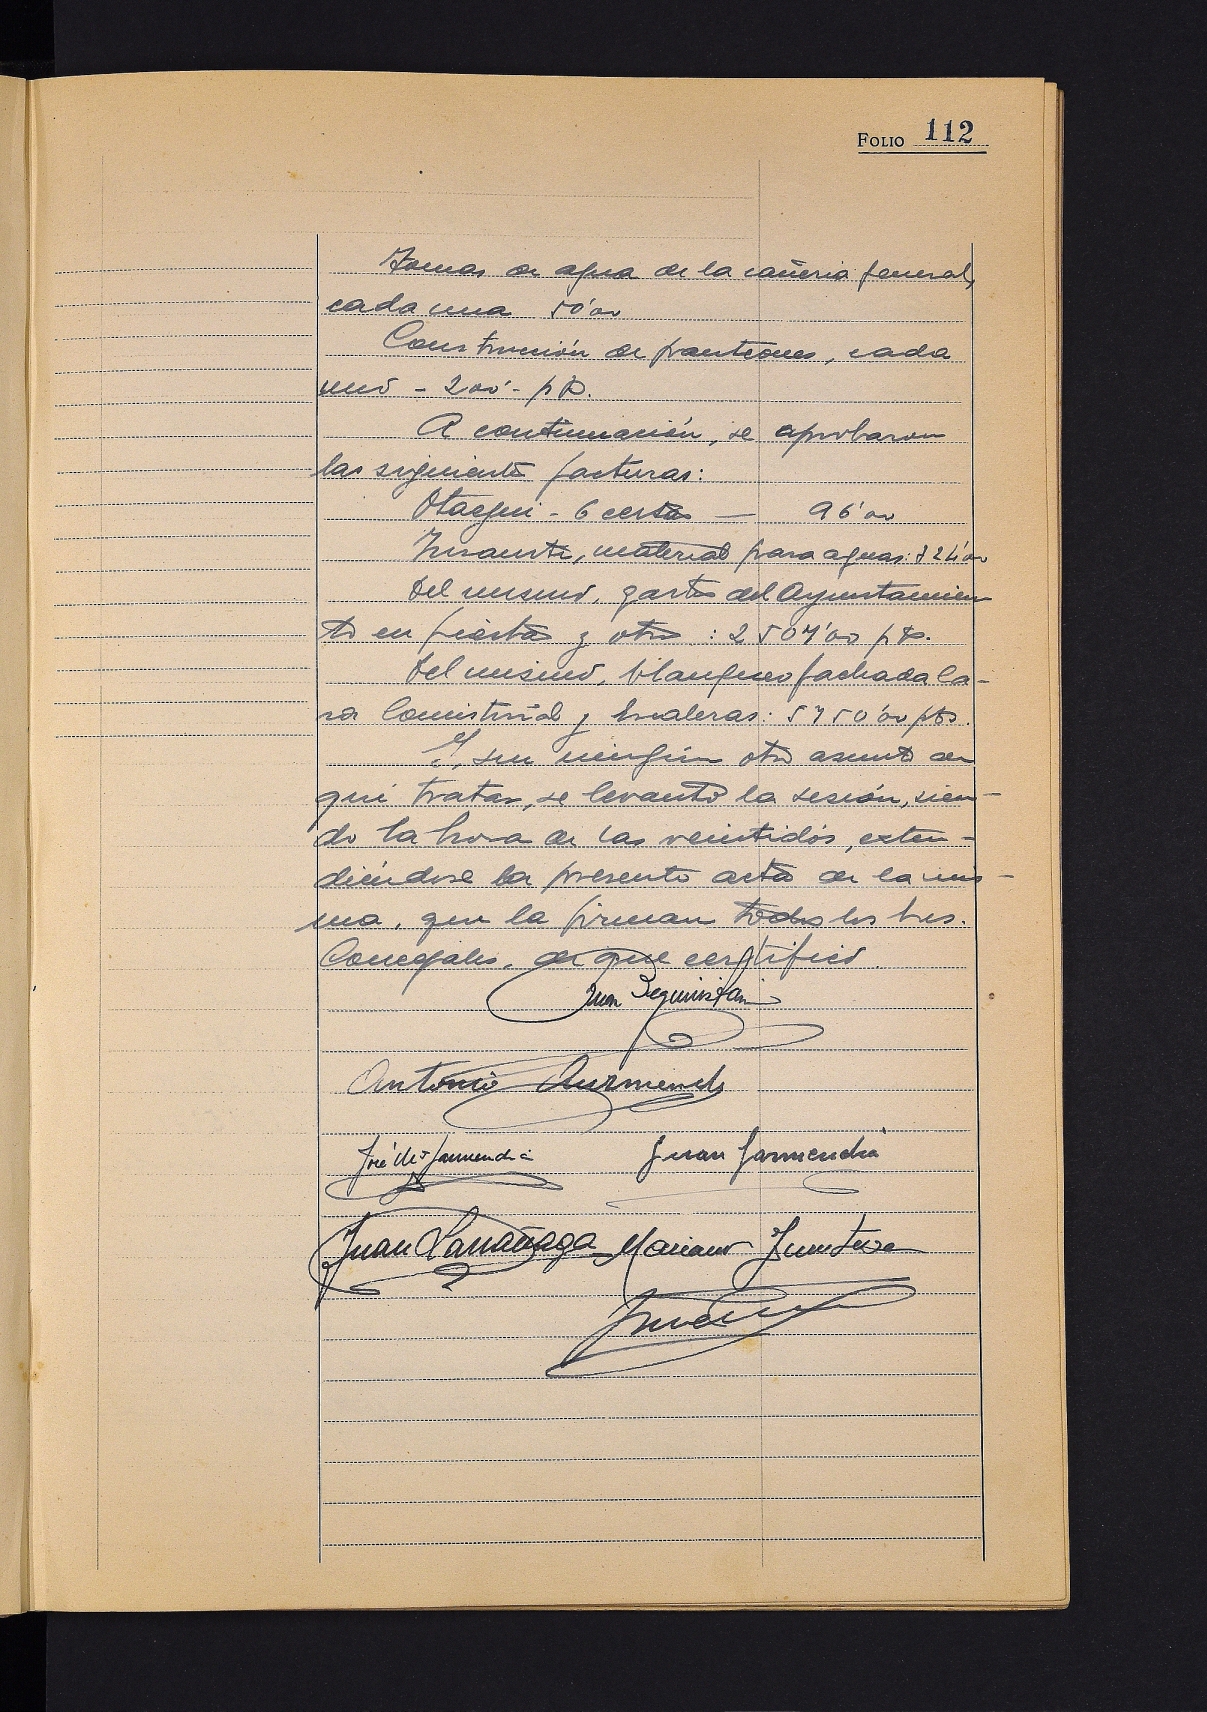 FOLIO 112
Tomas de agua de la cañeria general,
cada una 50'00
Construcción de panteones, cada
uno - 200'- pts.
A continuación, se aprobaron
las siguientes facturas:
Otaegui - 6 cestos — 96'00
material para aguas:
Del mismo, gastos del Ayuntamien
to en fiestas y otros : 2507'00 pts.
Del mismo, blanqueo fachada Ca-
sa Consistorial y : 5750'00 pts.
Y, sin ningún otro asunto de
qué tratar, se levantó la sesión, sien-
do la hora de las veintidós, exten-
diéndose la presente acta de la mis-
ma, que la firman todos los tres.
Concejales, de que certifico.
Juan Beguiristain
Antonio Aurmendi
José Mª Garmendia Juan Garmendia
Juan Larrañaga Mariano